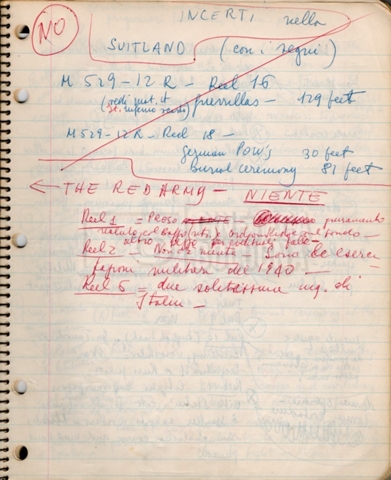 NO
INCERTI nella
SUITLAND (con i segni)
M 529-12 R - Reel 16
(vedi mat. it.
guerrillas - 129 feet
M 529-12 R - Reel 18 -
german POW's 30 feet
burial ceremony 81 feet
← THE RED ARMY - NIENTE
Reel 1 = PRESO puramente
Reel 2 - Non c'è niente Sono le eserci
tazioni militari del 1940 -
Reel 5 = due solitissime ing. di
Stalin -